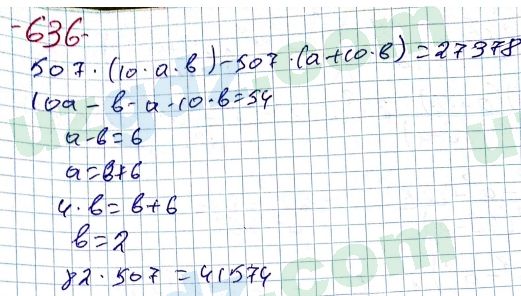 -636-
507·(10·a·b)-507·(a+10·b)=27378
10a-b-a-10·b=54
a-b=6
a=b+6
4·b=b+6
b=2
82·507=41574